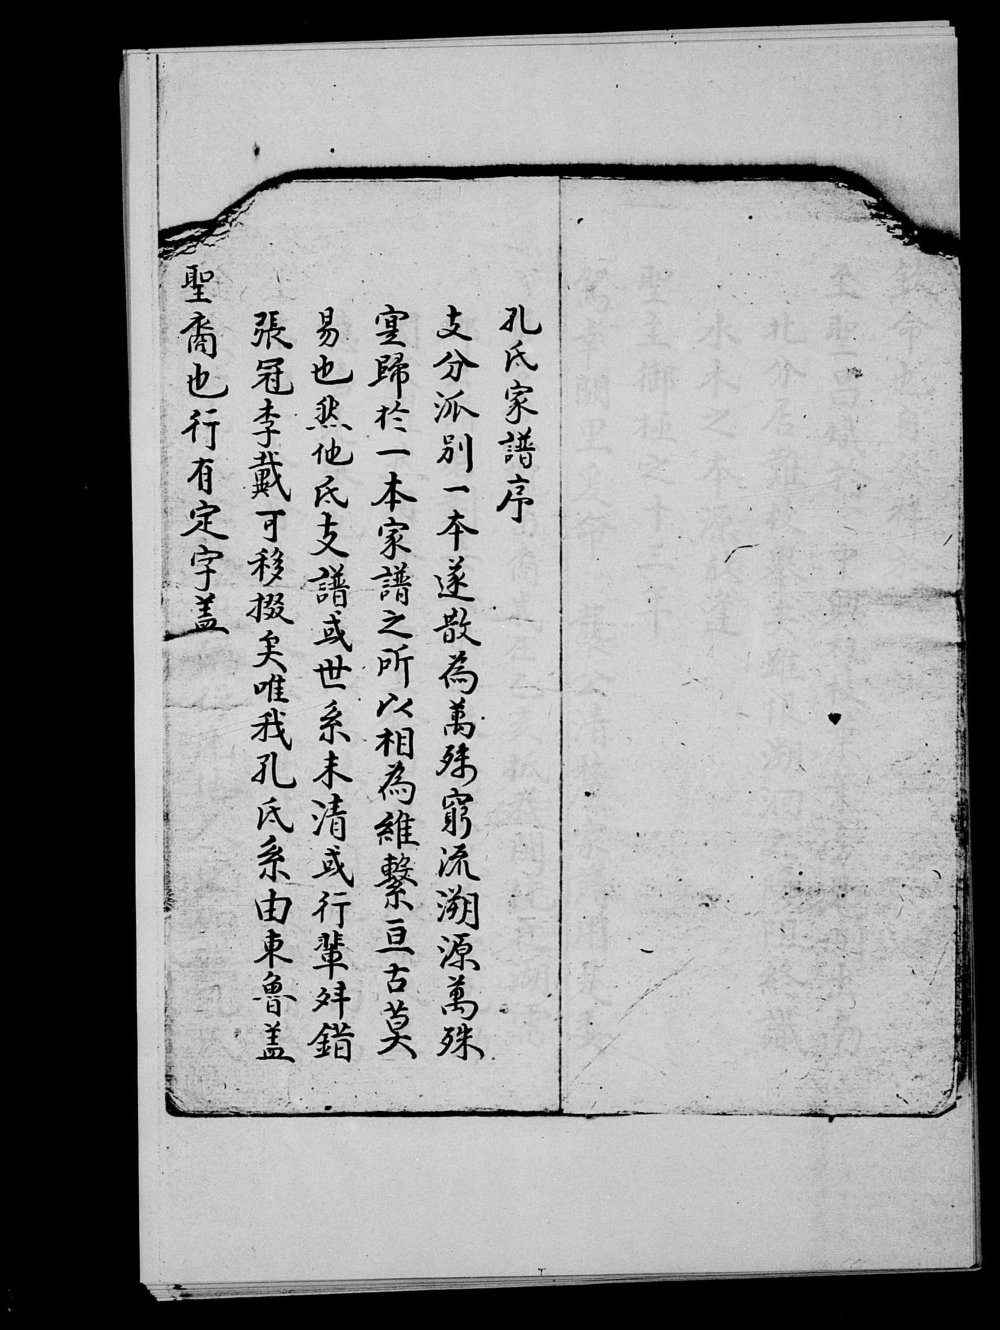 孔氏家譜序
支分派別一本遂散為萬殊窮流溯源萬殊
寔歸於一本家譜之所以相為維繫亘古莫
易也然他氏支譜或世系未清或行輩舛錯
張冠李戴可移掇矣唯我孔氏系由東魯盖
聖裔也行有定字盖